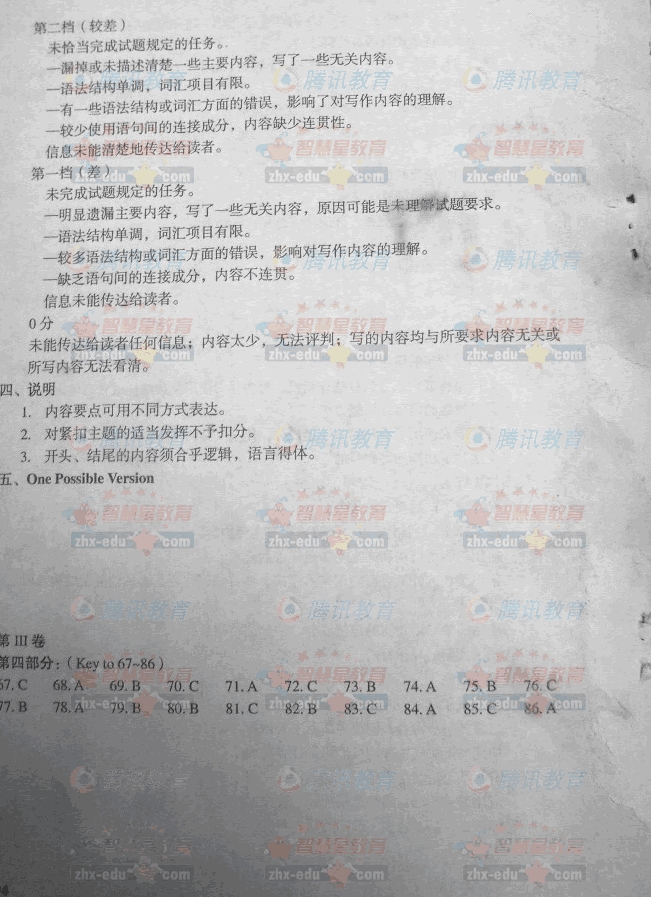 第二档（较差）
未恰当完成试题规定的任务。
—漏掉或未描述清楚一些主要内容，写了一些无关内容。
—语法结构单调，词汇项目有限。
—有一些语法结构或词汇方面的错误，影响了对写作内容的理解。
—较少使用语句间的连接成分，内容缺少连贯性。
信息未能清楚地传达给读者。
第一档（差）
未完成试题规定的任务。
—明显遗漏主要内容，写了一些无关内容，原因可能是未理解试题要求。
—语法结构单调，词汇项目有限。
—较多语法结构或词汇方面的错误，影响对写作内容的理解。
—缺乏语句间的连接成分，内容不连贯。
信息未能传达给读者。
0 分
未能传达给读者任何信息；内容太少，无法评判；写的内容均与所要求内容无关或
所写内容无法看清。
四、说明
1. 内容要点可用不同方式表达。
2. 对紧扣主题的适当发挥不予扣分。
3. 开头、结尾的内容须合乎逻辑，语言得体。
五、One Possible Version
第 III 卷
第四部分：（Key to 67~86）
67. C 68. A 69. B 70. C 71. A 72. C 73. B 74. A 75. B 76. C
77. B 78. A 79. B 80. B 81. C 82. B 83. C 84. A 85. C 86. A
腾讯教育
智慧星教育
zhx-edu com